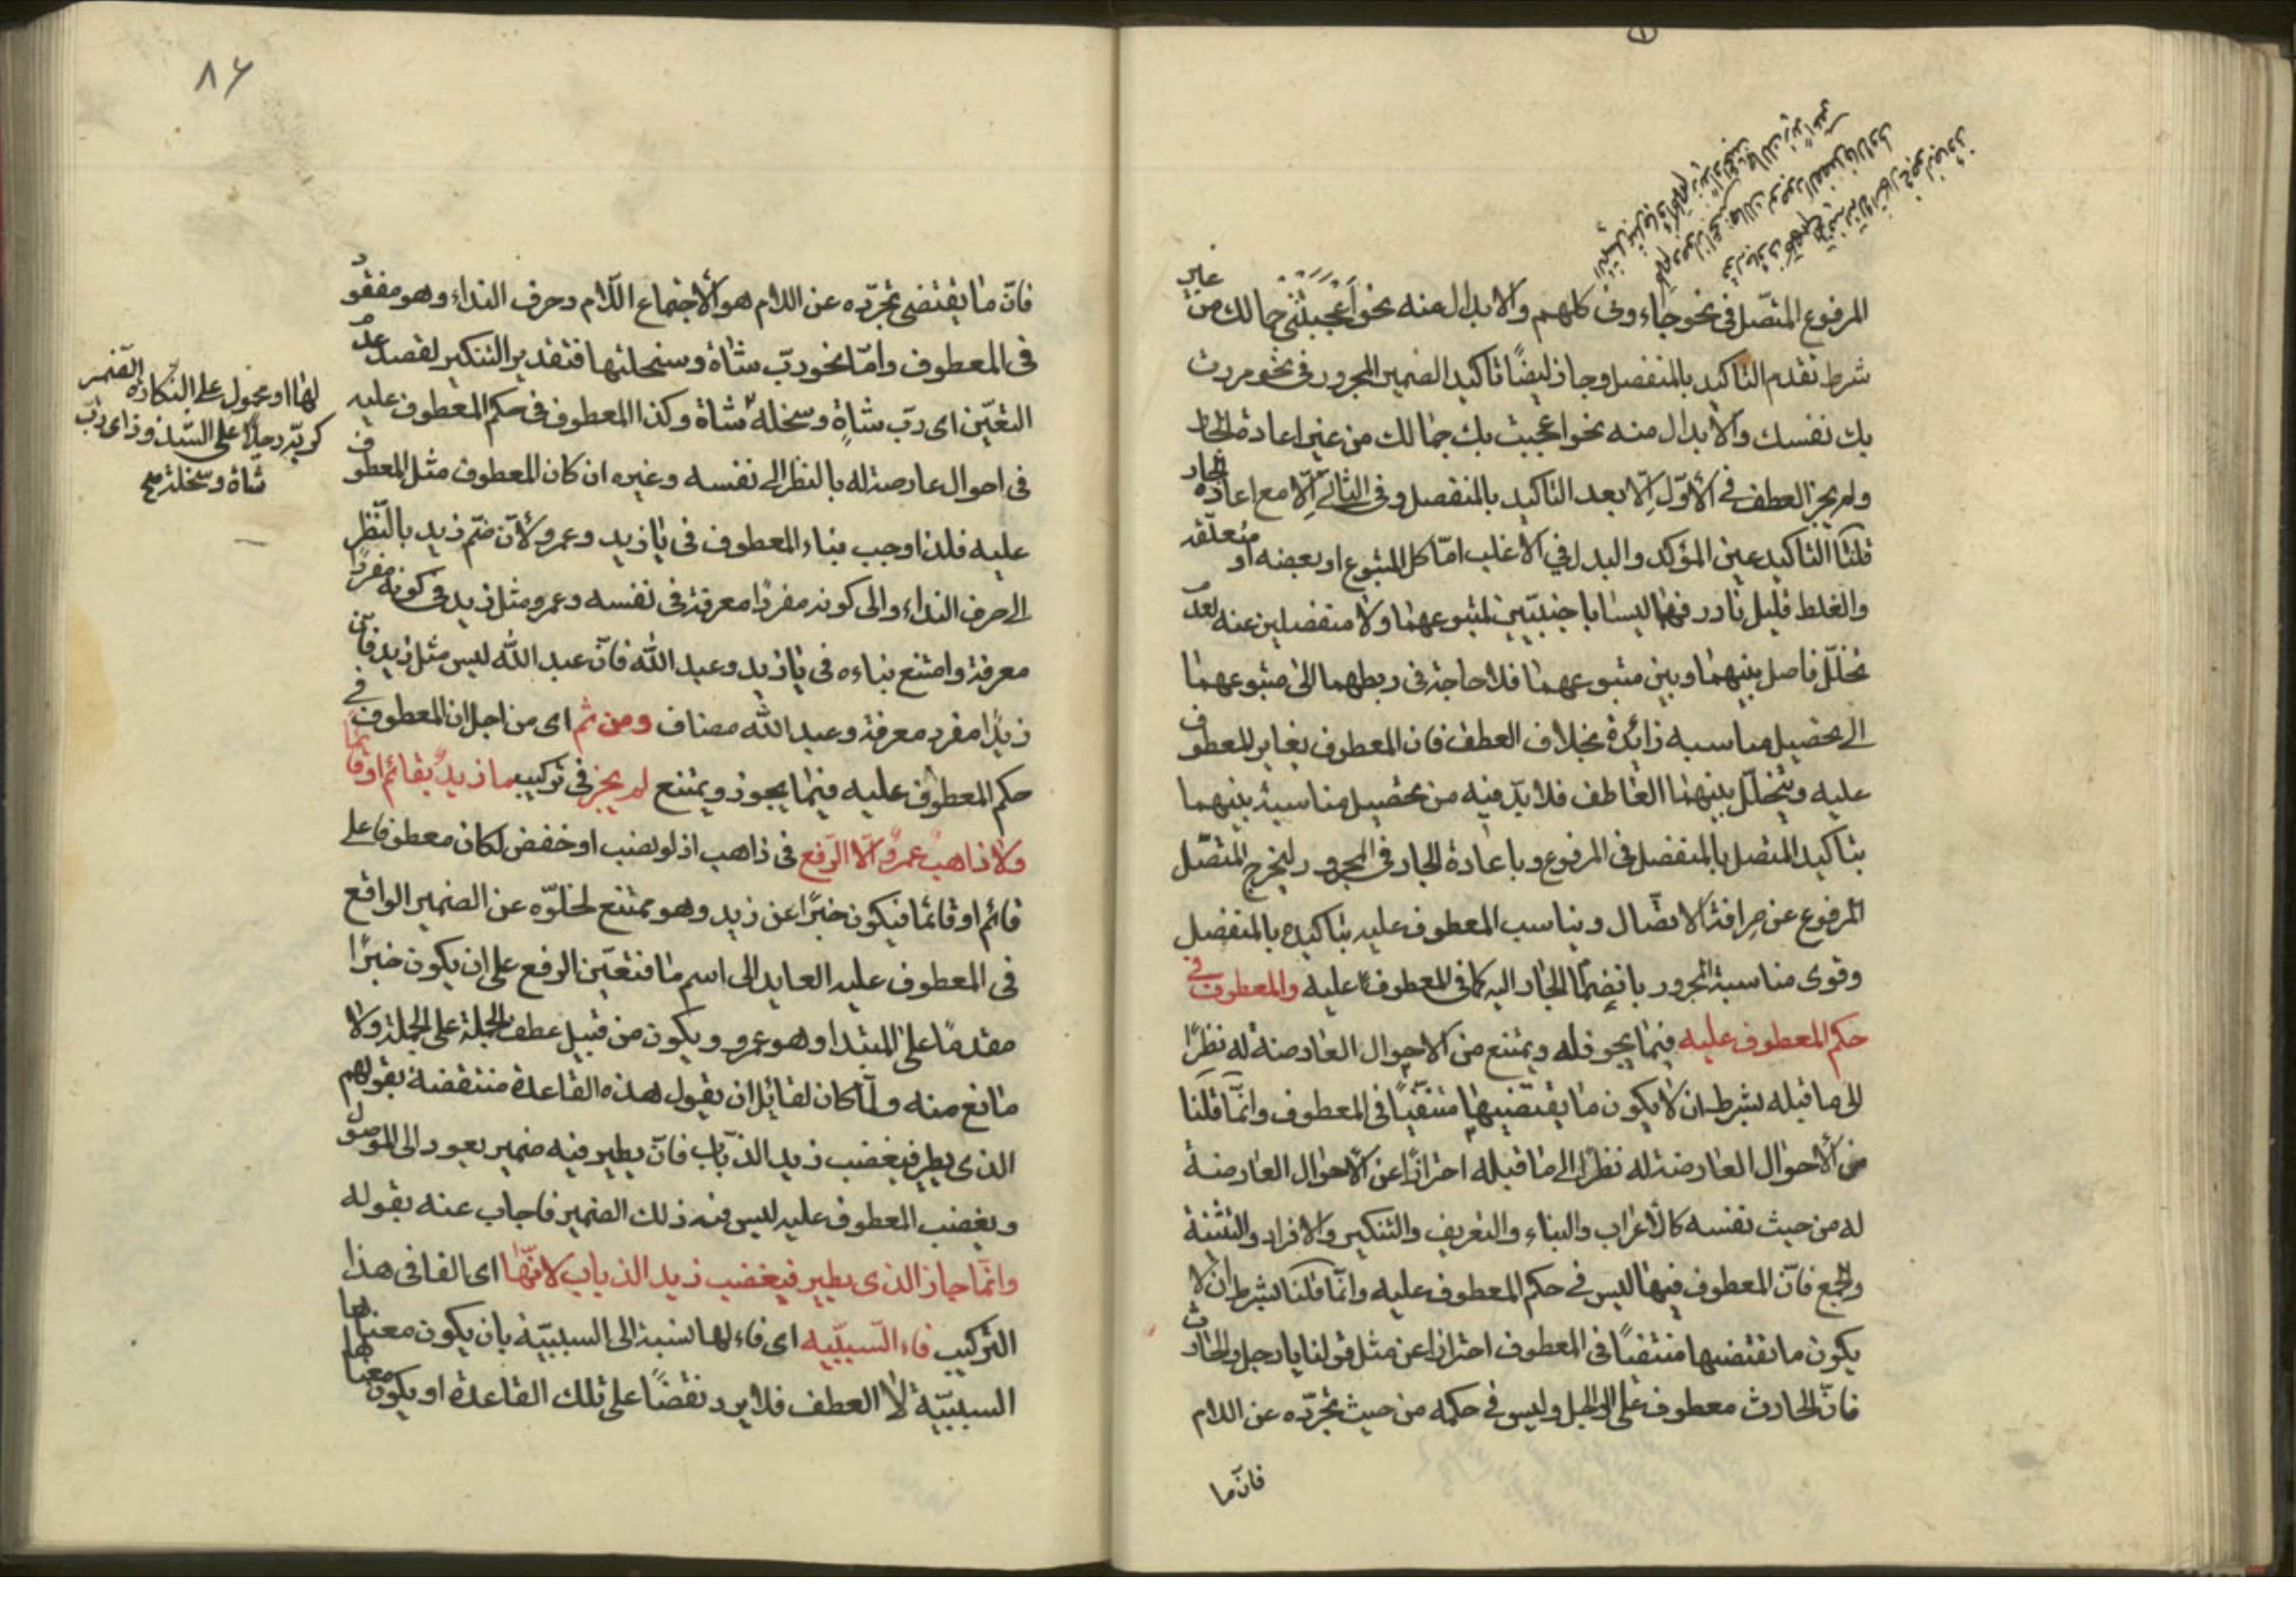 المرفوع المتّصل في نحو جاءوني كلهم والابدال منه نحو اعجبتني جمالك من غير
شرط تقدم التاكيد بالمنفصل وجاز ايضًا تاكيد الضمير المجرور في نحو مررت
بك نفسك والابدال منه نحو اعجبت بك جمالك من غير اعادة الجار
ولم يجز العطف في الاوّل الّا بعد التاكيد بالمنفصل وفي الثاني الّا مع اعادة الجار
قلنا التاكيد عين المؤكد والبدل في الاغلب امّا كل المتبوع او بعضه او متعلقه
والغلط قليل نادر فهما ليسا باجنبيّين لمتبوعهما ولا منفصلين عنه لعدم
تخلّل فاصل بينهما وبين متبوعهما فلا حاجة في ربطهما الى متبوعهما
الى تحصيل مناسبه زائدة بخلاف العطف فان المعطوف يغاير المعطوف
عليه ويتخلّل بينهما العاطف فلا بدّ فيه من تحصيل مناسبة بينهما
بتاكيد المتصل بالمنفصل في المرفوع وباعادة الجار في المجرور ليخرج المتصّل
المرفوع عن صرافة الاتصّال ويناسب المعطوف عليه بتاكيده بالمنفصل
وقوى مناسبة المجرور بانضمام الجار اليه كما في المعطوف عليه والمعطوف في
حكم المعطوف عليه فيما يجوز له ويمتنع من الاحوال العارضة له نظرًا
الى ما قبله بشرط ان لا يكون ما يقتضيها منتفيًا في المعطوف وانّما قلنا
من الاحوال العارضة له نظرًا الى ما قبله احترازًا عن الاحوال العارضة
له من حيث نفسه كالاعراب والبناء والتعريف والتنكير والافراد والتثنية
والجمع فانّ المعطوف فيها ليس في حكم المعطوف عليه وانّما قلنا بشرط ان لا
يكون ما يقتضيها منتفيًا في المعطوف احترازا عن مثل قولنا يا رجل والحارث
فانّ الحارث معطوف على الرجل وليس في حكمه من حيث تجرّده عن اللام
فانّ ما
٨٦
فانّ ما يقتضي تجرّده عن اللام هو الاجتماع اللّام وحرف النداء وهو مفقود
في المعطوف وامّا نحو ربّ شاة وسخلتها فتقدير التنكير لقصد عدم
التعيّن اى ربّ شاةٍ وسخلة شاة وكذا المعطوف في حكم المعطوف عليه
في احوال عارضة له بالنظر الى نفسه وغيره ان كان المعطوف مثل المعطوف
عليه فلذا وجب بناء المعطوف في يا زيد وعمرو لانّ ضمّ زيد بالنّظر
الى حرف النداء والى كونه مفردًا معرفة في نفسه وعمرو مثل زيد في كونه مفردًا
معرفة وامتنع بناءه في يا زيد وعبد الله فانّ عبد الله ليس مثل زيد فانّ
زيدًا مفرد معرفة وعبد الله مضاف ومن ثم اى من اجل ان المعطوف في
حكم المعطوف عليه فيما يجوز ويمتنع لم يجز في تركيب ما زيدٌ بقائم او قائمًا
ولا ذاهبٌ عمرٌو الّا الرّفع في ذاهب اذ لو نصب او خفض لكان معطوفا على
قائم او قائما فيكون خبرًا عن زيد وهو ممتنع لخلوّه عن الضمير الواقع
في المعطوف عليه العايد الى اسم ما فتعيّن الرفع على ان يكون خبرًا
مقدمًا على المبتدا وهو عمرو ويكون من قبيل عطف الجملة على الجملة ولا
مانع منه ولمّا كان لقائل ان يقول هذه القاعدة منتقضة بقولهم
الذي يطير فيغضب زيد الذباب فانّ يطير فيه ضمير يعود الى الموصول
ويغضب المعطوف عليه ليس فيه ذلك الضمير فاجاب عنه بقوله
وانّما جاز الذي يطير فيغضب زيد الذباب لانّها اى الفا في هذا
التركيب فاء السّببيّه اى فاء لها نسبة الى السببيّة بان يكون معناها
السببيّة لا العطف فلا يرد نقضًا على تلك القاعدة او يكون معناها
لها او محمول على النكارة الضمير
كربّه رجلًا على الشذوذ اى ربّ
شاة وسخلة شاة